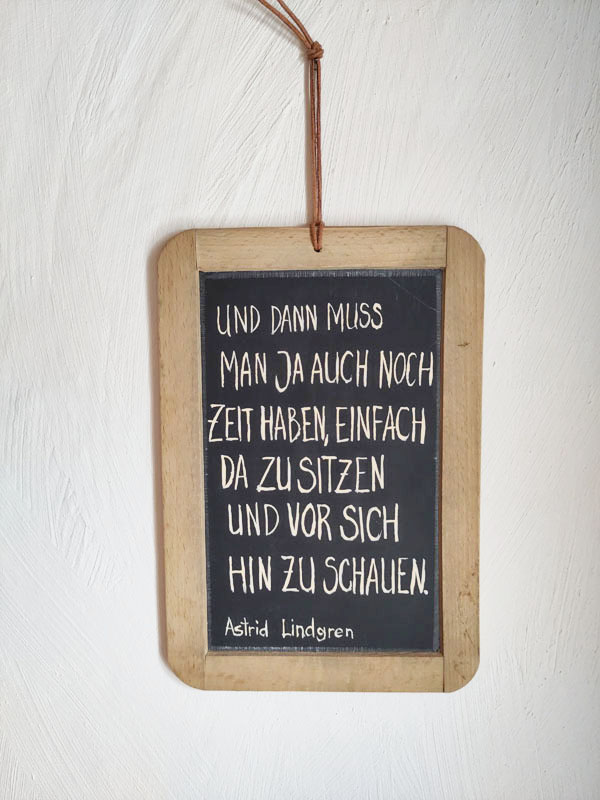 UND DANN MUSS
MAN JA AUCH NOCH
ZEIT HABEN, EINFACH
DA ZU SITZEN
UND VOR SICH
HIN ZU SCHAUEN.
Astrid Lindgren